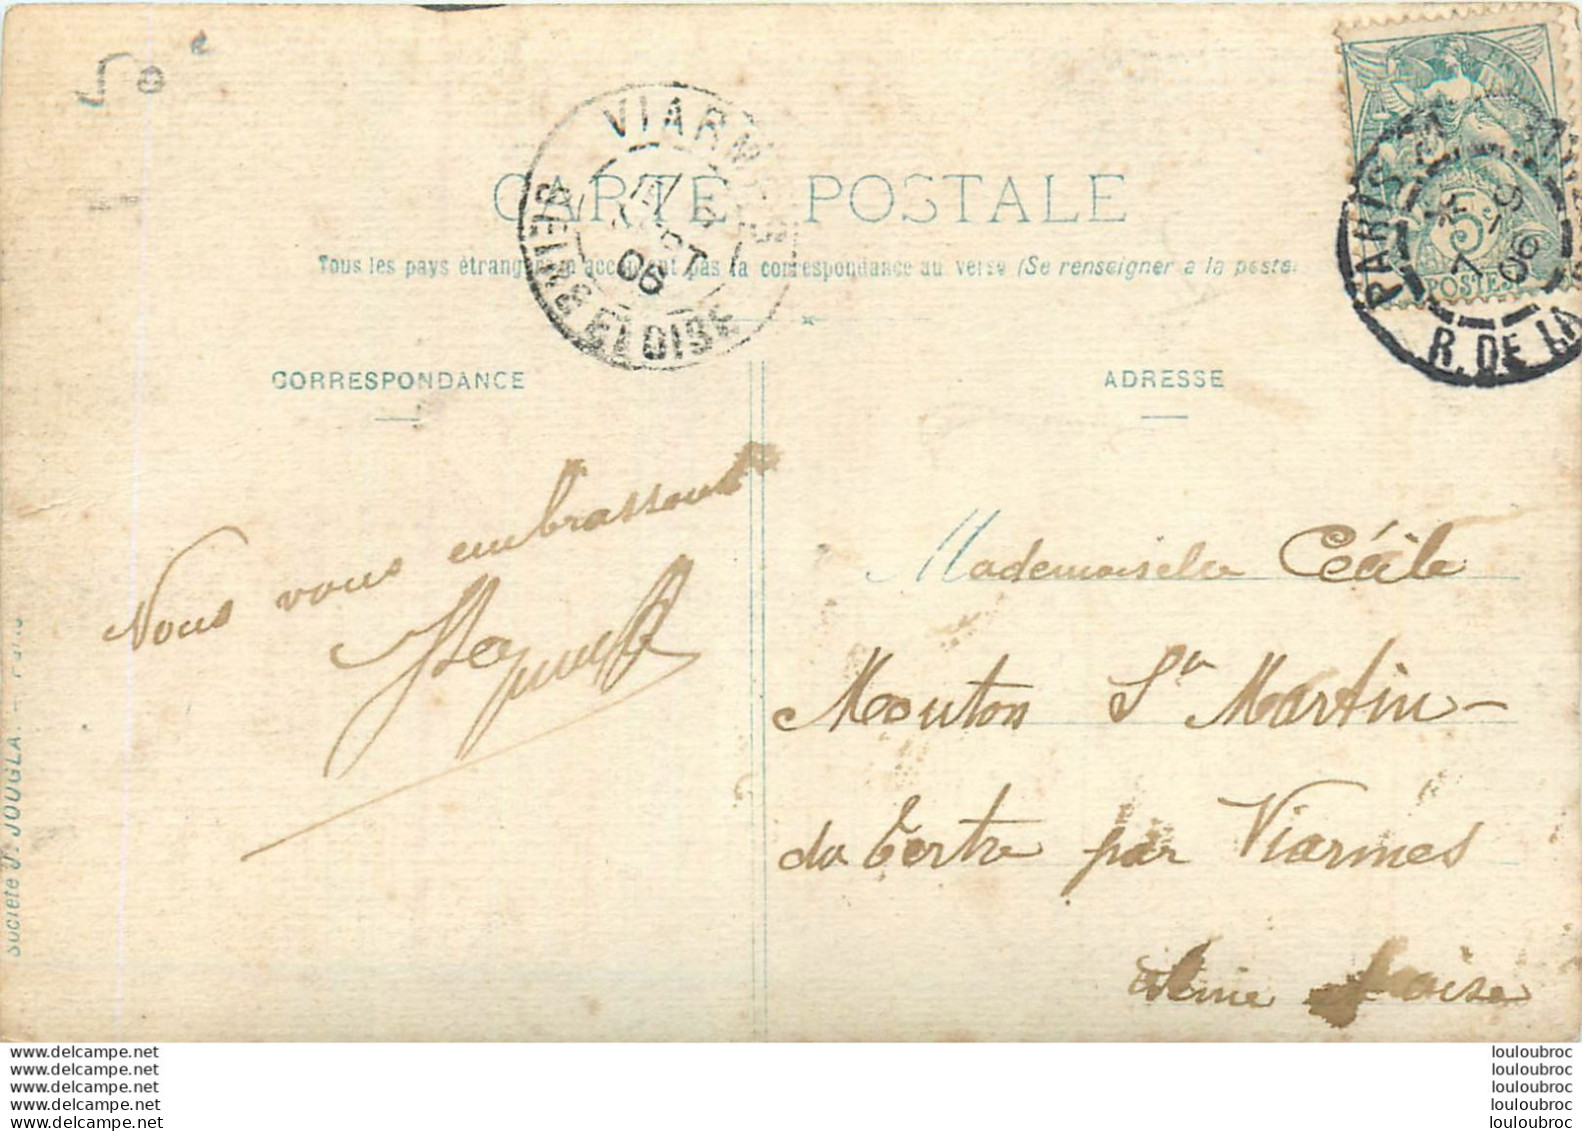 50 c
VIARMES
SEINE & OISE
06
CARTE POSTALE
Tous les pays étrangers n'acceptent pas la correspondance au verso (Se renseigner a la poste)
PARIS
R. DE LA
5
POSTES
CORRESPONDANCE
ADRESSE
Nous vous embrassons
Mademoiselle Cécile
Mouton St Martin-
du Tertre par Viarmes
Seine & Oise
Société J. JOUGLA. - Paris
www.delcampe.net
www.delcampe.net
www.delcampe.net
www.delcampe.net
www.delcampe.net
louloubroc
louloubroc
louloubroc
louloubroc
louloubroc